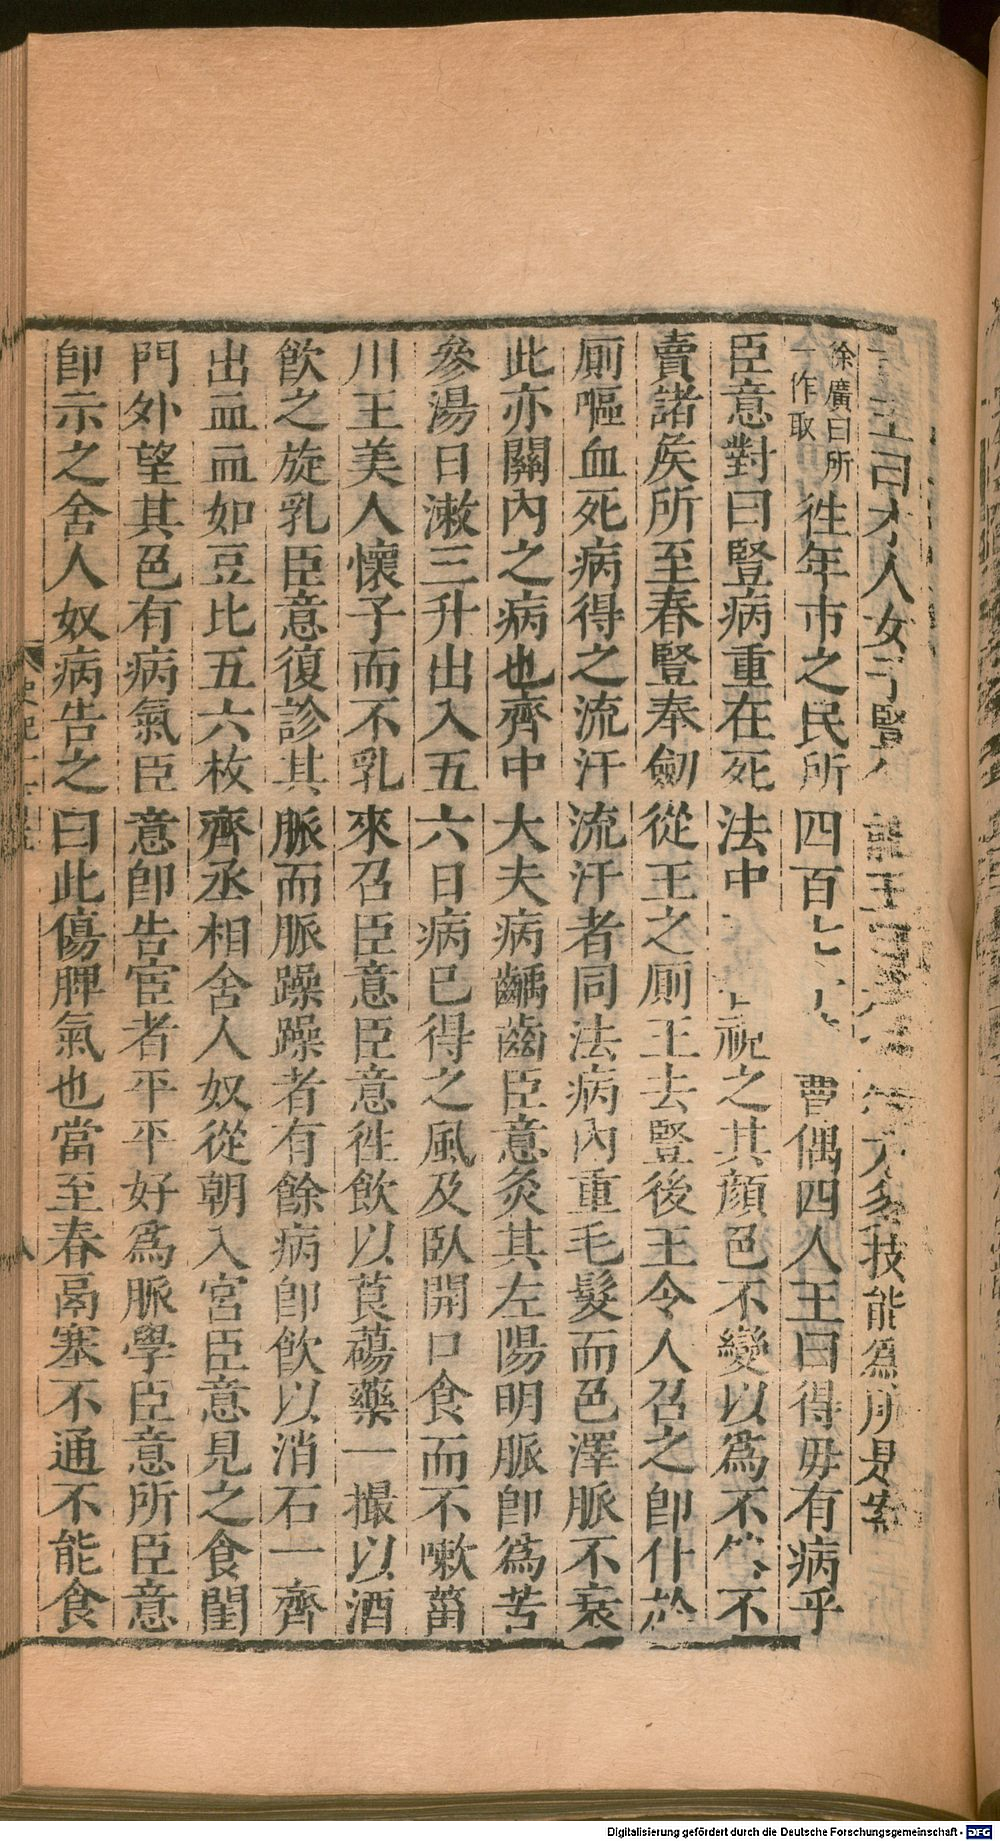 王曰才人女子豎能王多技能爲所是案
徐廣曰所
一作取
徃年市之民所四百七曹偶四人王曰得毋有病乎
臣意對曰豎病重在死法中視之其顏色不變以爲不然不
賣諸矦所至春豎奉劒從王之厠王去豎後王令人召之卽仆於
厠嘔血死病得之流汗流汗者同法病內重毛髮而色澤脈不衰
此亦關內之病也齊中大夫病齲齒臣意灸其左陽明脈卽爲苦
參湯日漱三升出入五六日病已得之風及臥開口食而不嗽菑
川王美人懷子而不乳來召臣意臣意徃飮以莨䕞藥一撮以酒
飮之旋乳臣意復診其脈而脈躁躁者有餘病卽飮以消石一齊
出血血如豆比五六枚齊丞相舍人奴從朝入宮臣意見之食閨
門外望其色有病氣臣意卽告宦者平平好爲脈學臣意所臣意
卽示之舍人奴病告之曰此傷脾氣也當至春鬲塞不通不能食
Digitalisierung gefördert durch die Deutsche Forschungsgemeinschaft - DFG